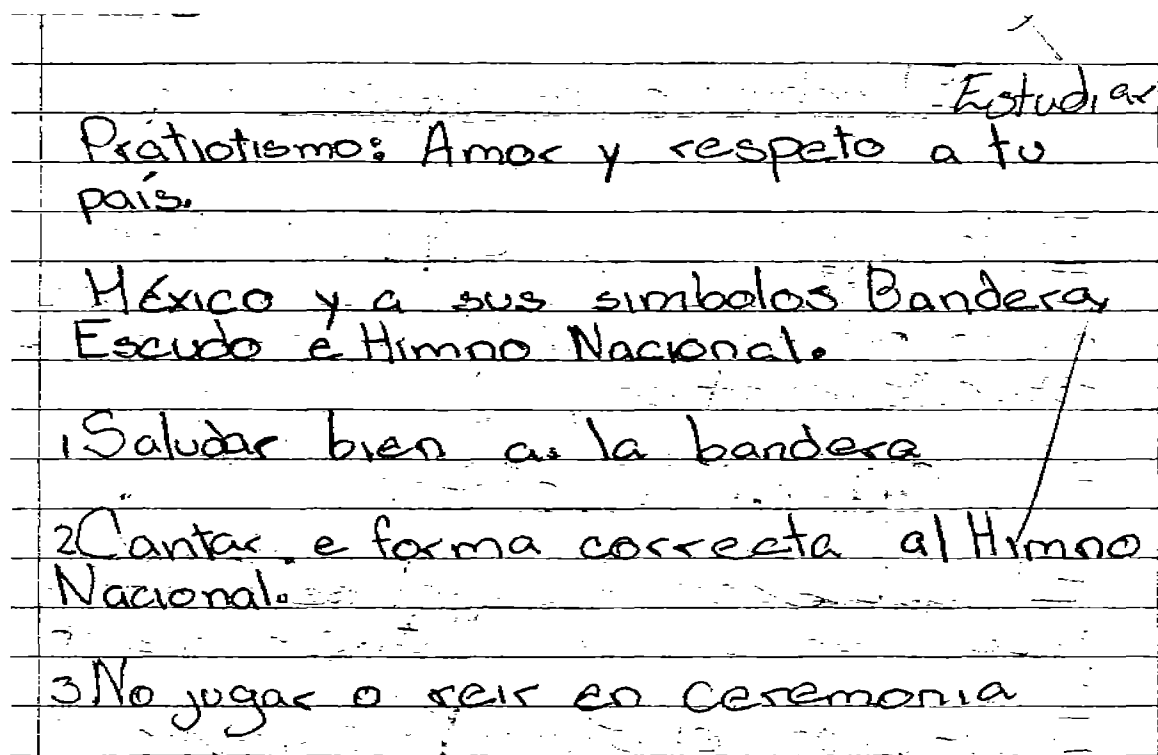 Estudiar
Pratiotismo: Amor y respeto a tu
país.
México y a sus simbolos Bandera,
Escudo e Himno Nacional.
1 Saludar bien a la bandera
2 Cantar e forma correcta al Himno
Nacional.
3 No jugar o reir en ceremonia